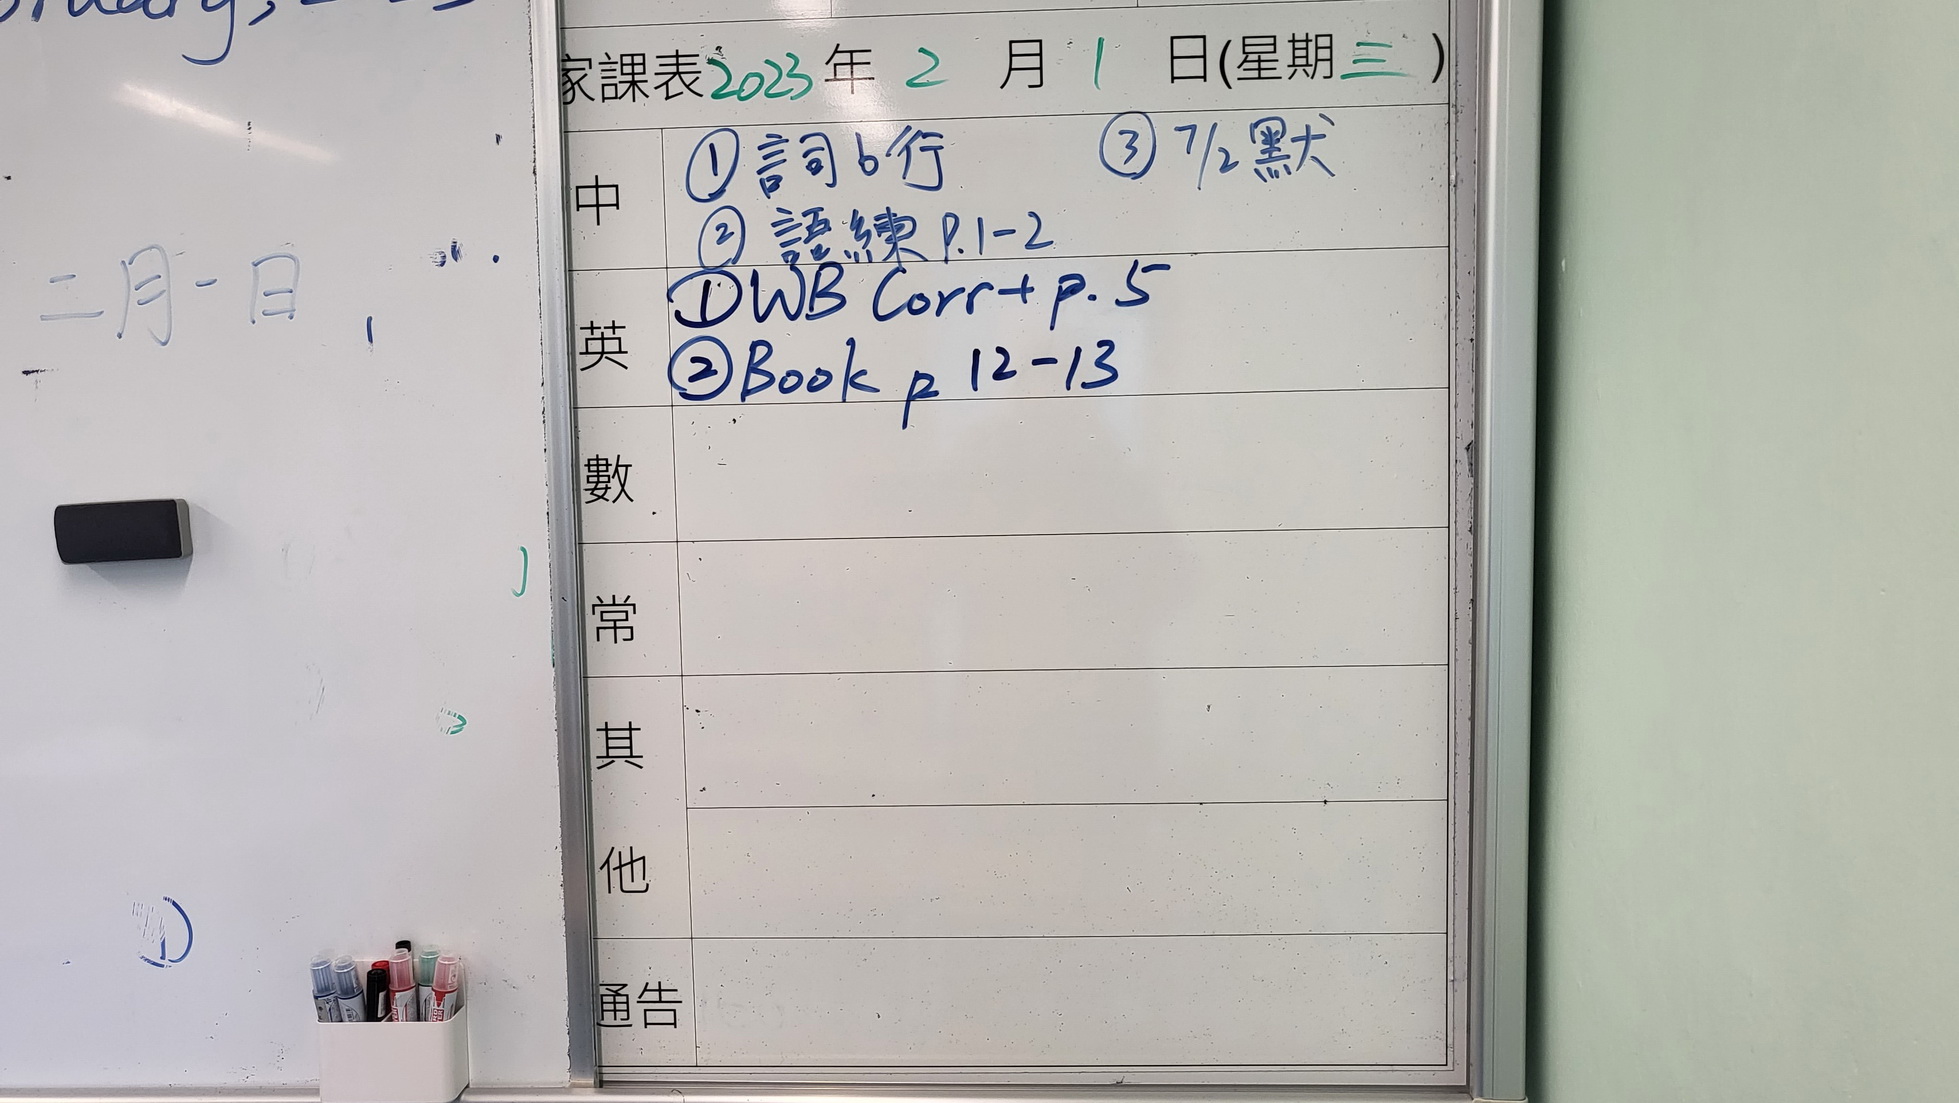 二月一日
家課表2023年2月1日(星期三)
中
① 詞6行
③ 7/2默
② 語練 P.1-2
英
① WB Corr + p. 5
② Book p 12-13
數
常
其
他
通告
①